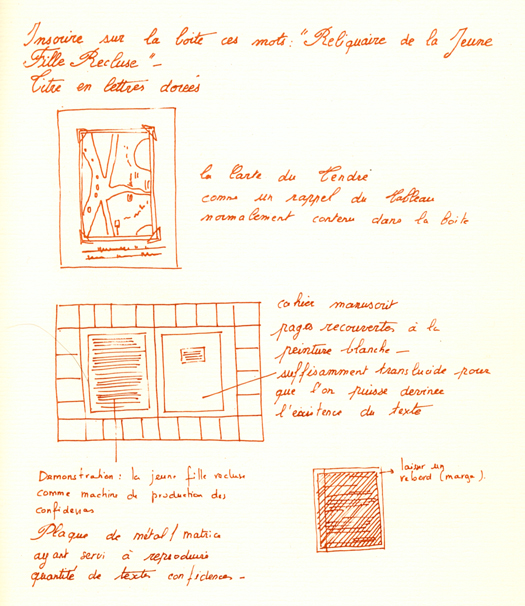 Inscrire sur la boite ces mots : "Reliquaire de la Jeune
Fille Recluse" -
Titre en lettres dorées
la Carte du Tendre
comme un rappel du tableau
normalement contenu dans la boite
cahier manuscrit
pages recouvertes à la
peinture blanche -
suffisamment translucide pour
que l'on puisse deviner
l'existence du texte
Démonstration : la jeune fille recluse
comme machine de production des
confidences
laisser un
rebord (marge).
Plaque de métal / matrice
ayant servi à reproduire
quantité de textes confidences -